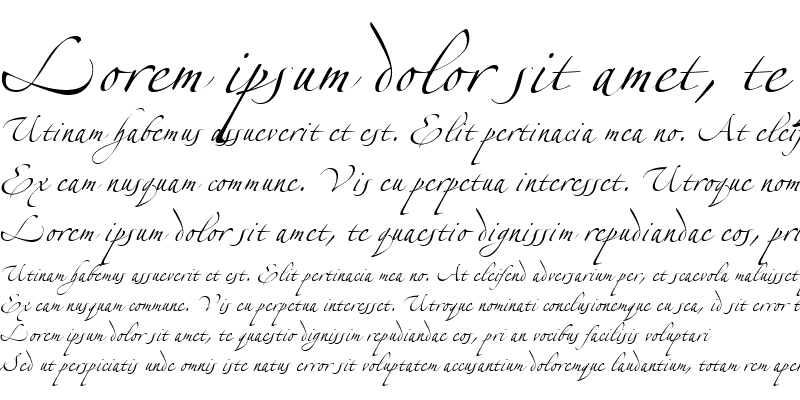 Lorem ipsum dolor sit amet, te
Utinam habemus assueverit et est. Elit pertinacia mea no. At eleif
Ex eam nusquam commune. Vis eu perpetua interesset. Utroque nom
Lorem ipsum dolor sit amet, te quaestio dignissim repudiandae eos, pri
Utinam habemus assueverit et est. Elit pertinacia mea no. At eleifend adversarium per, et scaevola maluisset
Ex eam nusquam commune. Vis eu perpetua interesset. Utroque nominati conclusionemque eu sea, id sit error t
Lorem ipsum dolor sit amet, te quaestio dignissim repudiandae eos, pri an vocibus facilisis voluptari
Sed ut perspiciatis unde omnis iste natus error sit voluptatem accusantium doloremque laudantium, totam rem aper